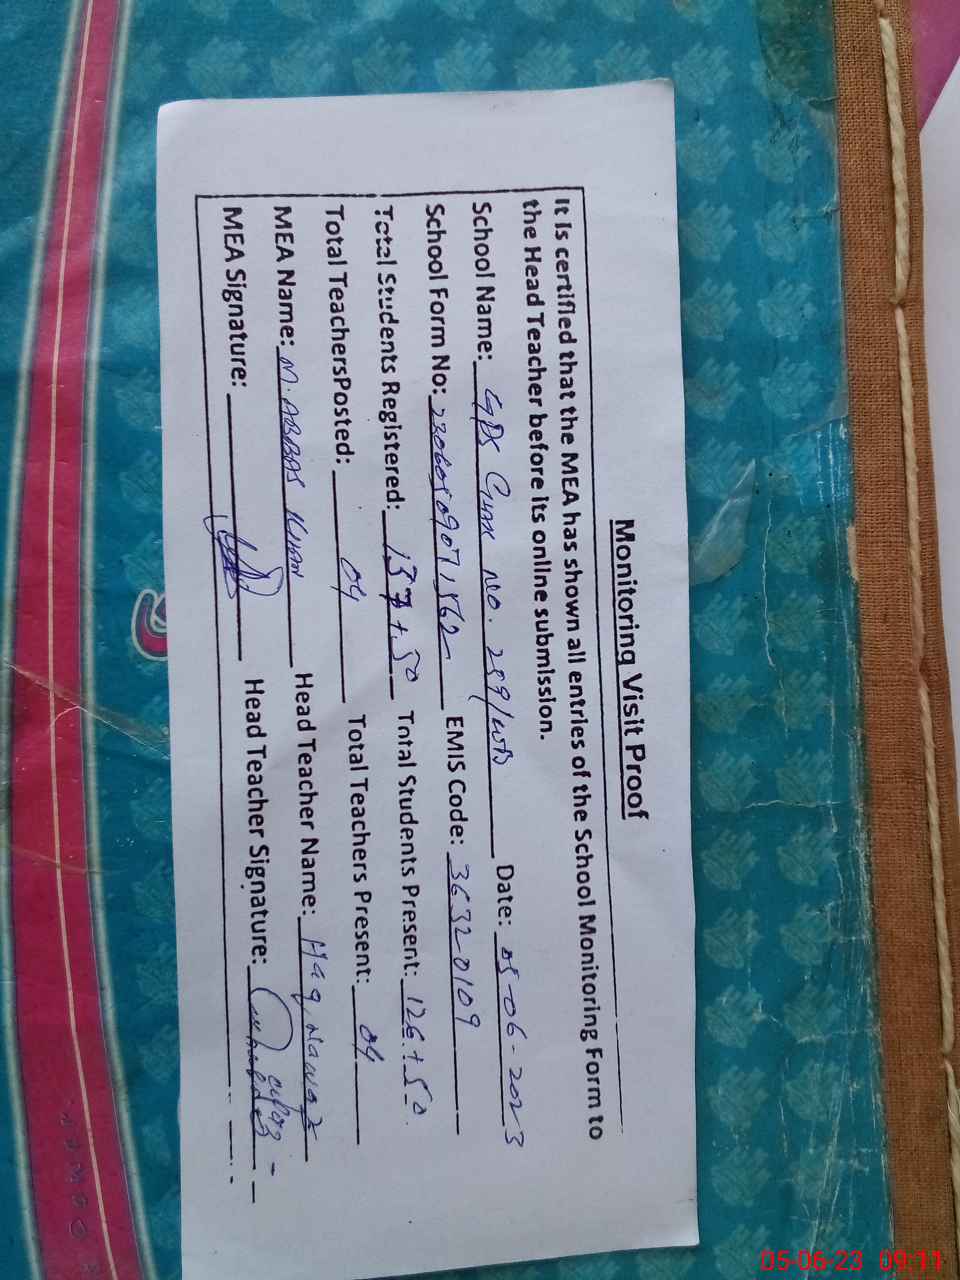 Monitoring Visit Proof
It is certified that the MEA has shown all entries of the School Monitoring Form to
the Head Teacher before its online submission.
School Name: GPS Chak No. 289/WB Date: 05-06-2023
School Form No: EMIS Code: 36320109
Total Students Registered: 137+50 Total Students Present: 126+50
Total TeachersPosted: 04 Total Teachers Present: 04
MEA Name: M. ABBAS KHAN Head Teacher Name: Haq Nawaz
MEA Signature: Head Teacher Signature:
05-06-23 09:11